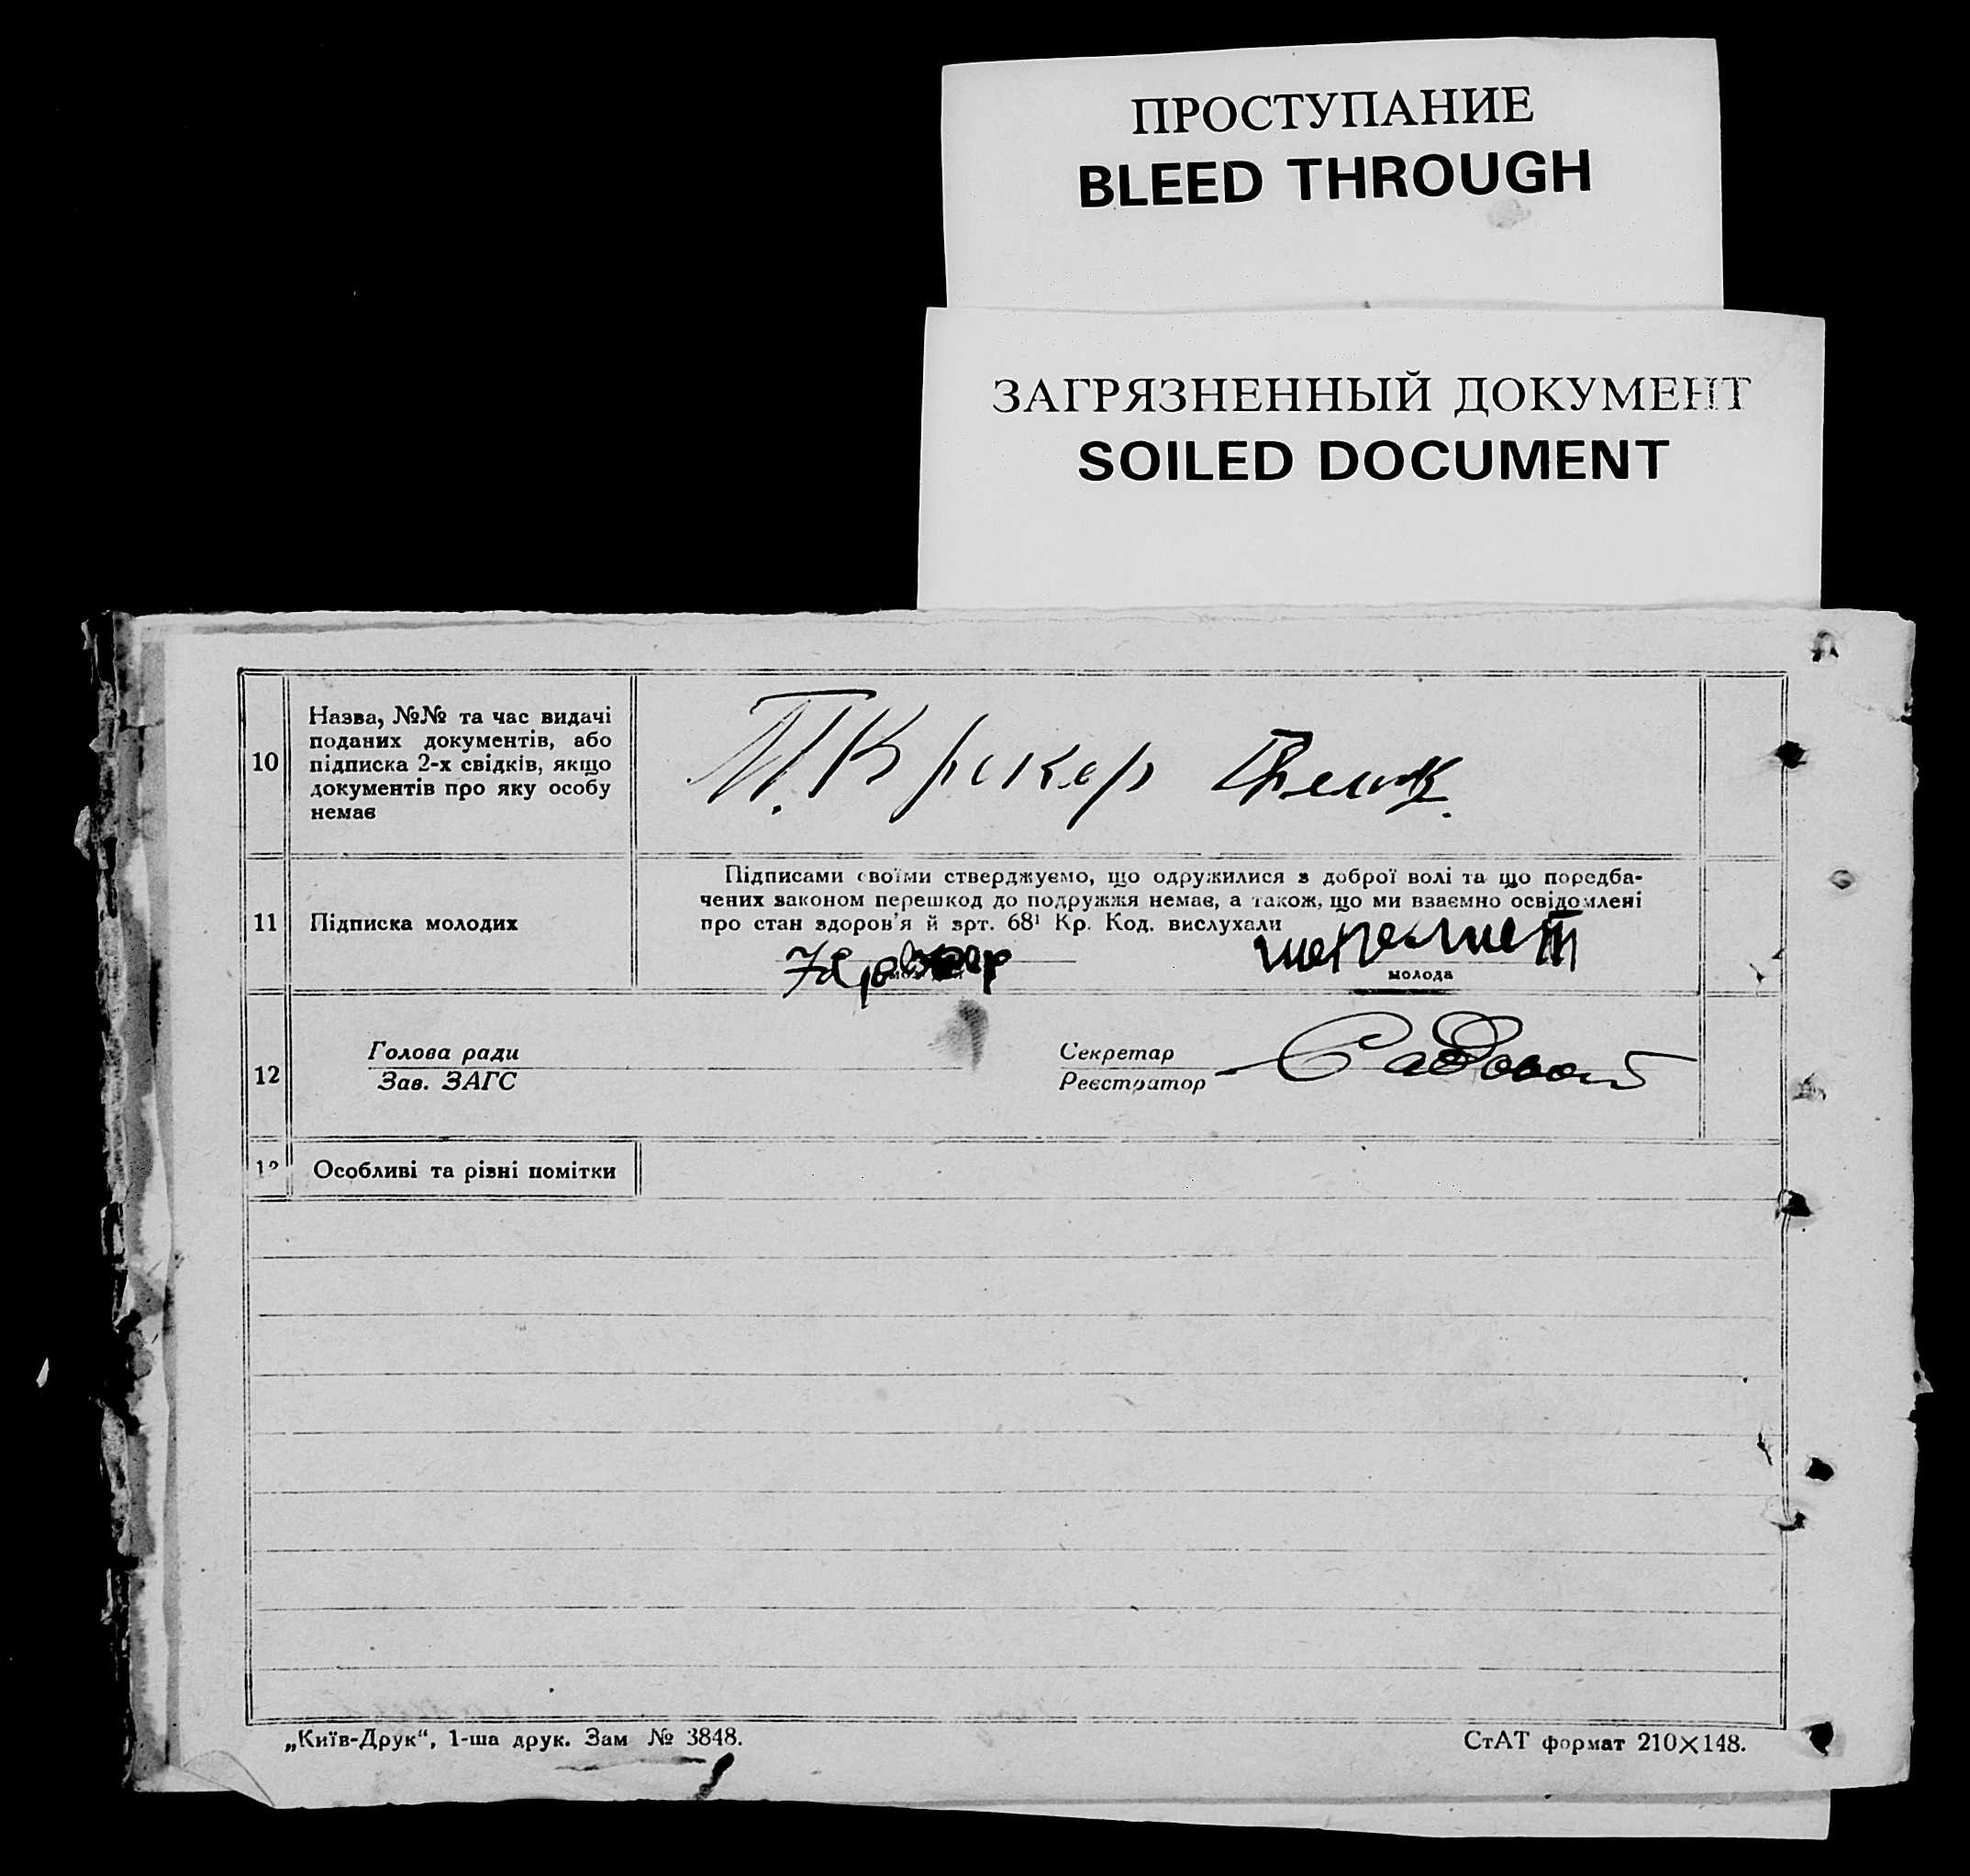 ПРОСТУПАНИЕ
BLEED THROUGH
ЗАГРЯЗНЕННЫЙ ДОКУМЕНТ
SOILED DOCUMENT
10
Назва, №№ та час видачі
поданих документів, або
підписка 2-х свідків, якщо
документів про яку особу
немає
11
Підписка молодих
Підписами своїми стверджуємо, що одружилися з доброї волі та що поредба-
чених законом перешкод до подружжя немає, а також, що ми взаємно освідомлені
про стан здоров'я й зрт. 68¹ Кр. Код. вислухали
молода
12
Голова ради
Зав. ЗАГС
Секретар
Реєстратор
Садовой
Особливі та різні помітки
„Київ-Друк“, 1-ша друк. Зам № 3848.
СтАТ формат 210×148.